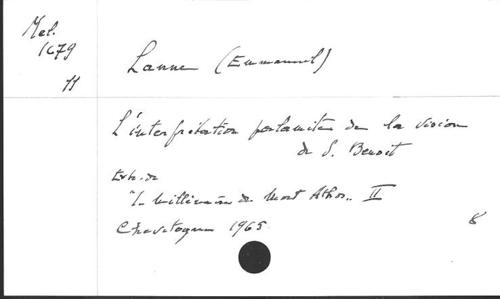 Mel.
1679
11
Lanne (Emmanuel)
L'interprétation palamite de la vision
de S. Benoit
Extr. de
"Le Millénaire du Mont Athos" II
Chevetogne 1965
8